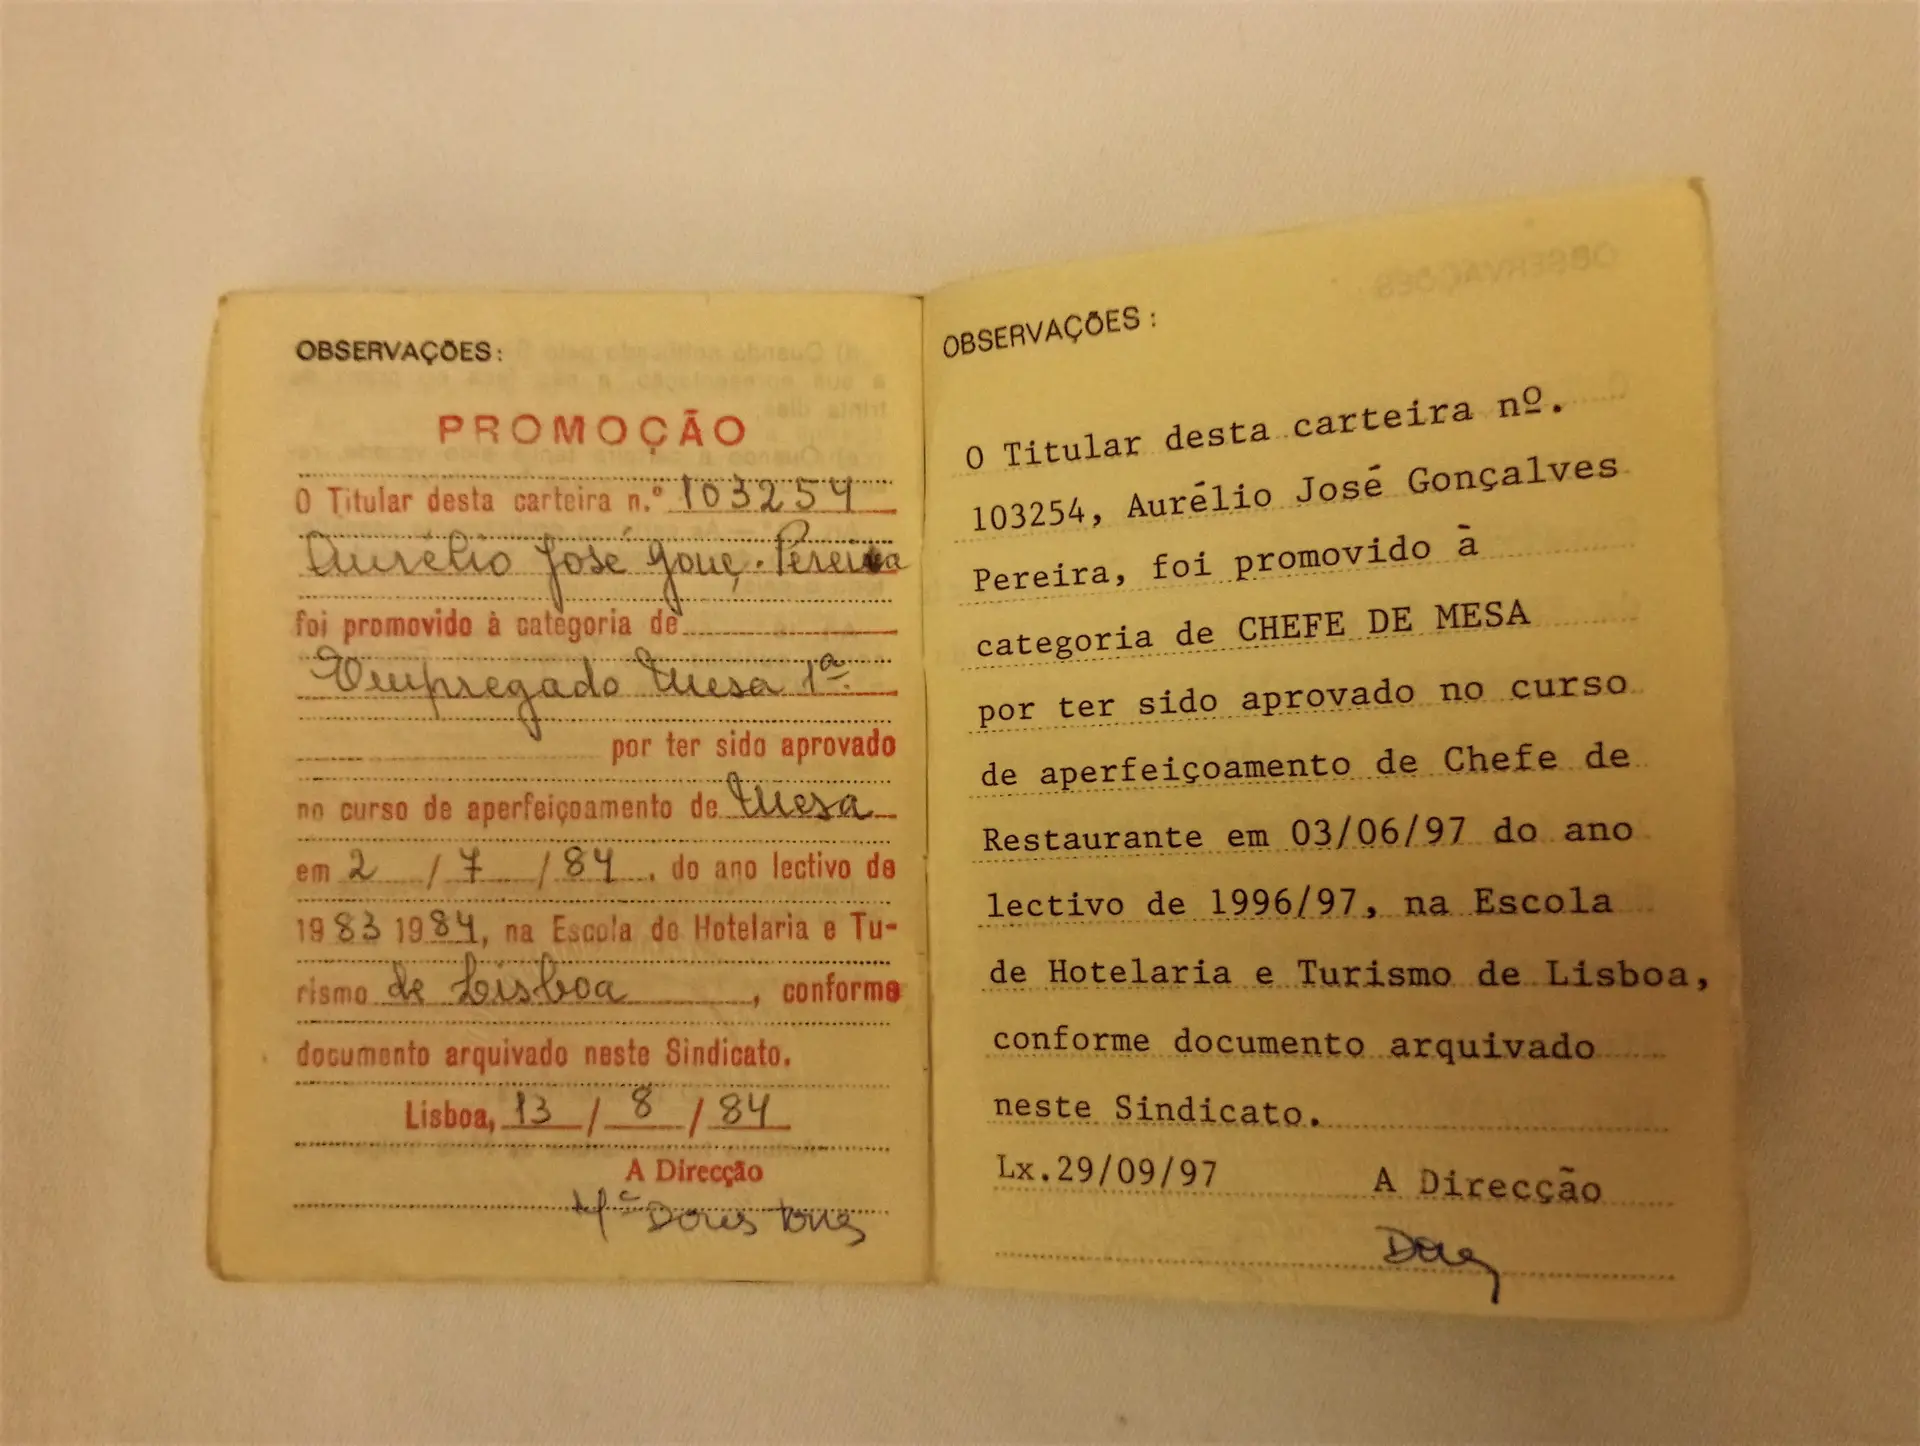 OBSERVAÇÕES:
PROMOÇÃO
O Titular desta carteira n.º 103254
Aurélio José Gonç. Pereira
foi promovido à categoria de
Empregado Mesa 1ª
por ter sido aprovado
no curso de aperfeiçoamento de Mesa
em 2 / 7 / 84, do ano lectivo de
1983 1984, na Escola de Hotelaria e Tu-
rismo de Lisboa, conforme
documento arquivado neste Sindicato.
Lisboa, 13 / 8 / 84
A Direcção
Mª Dores
OBSERVAÇÕES:
O Titular desta carteira nº.
103254, Aurélio José Gonçalves
Pereira, foi promovido à
categoria de CHEFE DE MESA
por ter sido aprovado no curso
de aperfeiçoamento de Chefe de
Restaurante em 03/06/97 do ano
lectivo de 1996/97, na Escola
de Hotelaria e Turismo de Lisboa,
conforme documento arquivado
neste Sindicato.
Lx.29/09/97 A Direcção